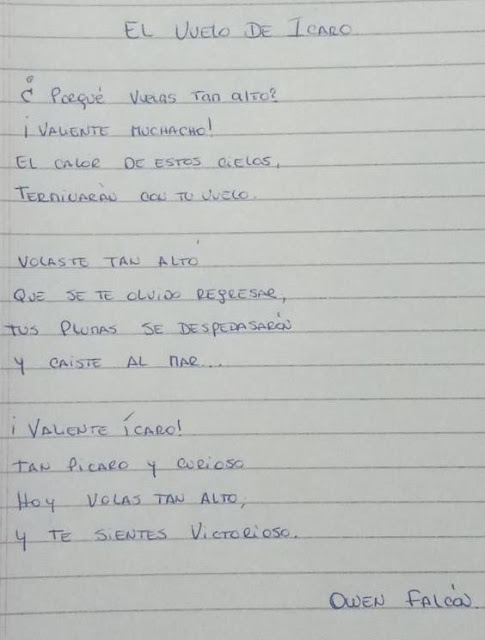 EL VUELO DE ICARO
¿ PORQUÉ VUELAS TAN ALTO?
¡VALIENTE MUCHACHO!
EL CALOR DE ESTOS CIELOS,
TERMINARÁN CON TU VUELO.
VOLASTE TAN ALTO
QUE SE TE OLVIDO REGRESAR,
TUS PLUMAS SE DESPEDASARÓN
Y CAISTE AL MAR...
¡VALIENTE ÍCARO!
TAN PICARO Y CURIOSO
HOY VOLAS TAN ALTO,
Y TE SIENTES VICTORIOSO.
OWEN FALCÓN.